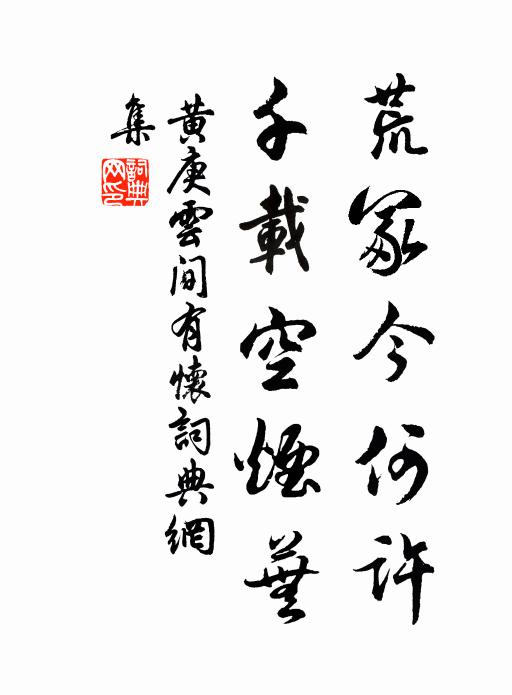 荒冢今何許
千載空煙蕪
黃庚雲間有懷詞典網
集
詞典
网印